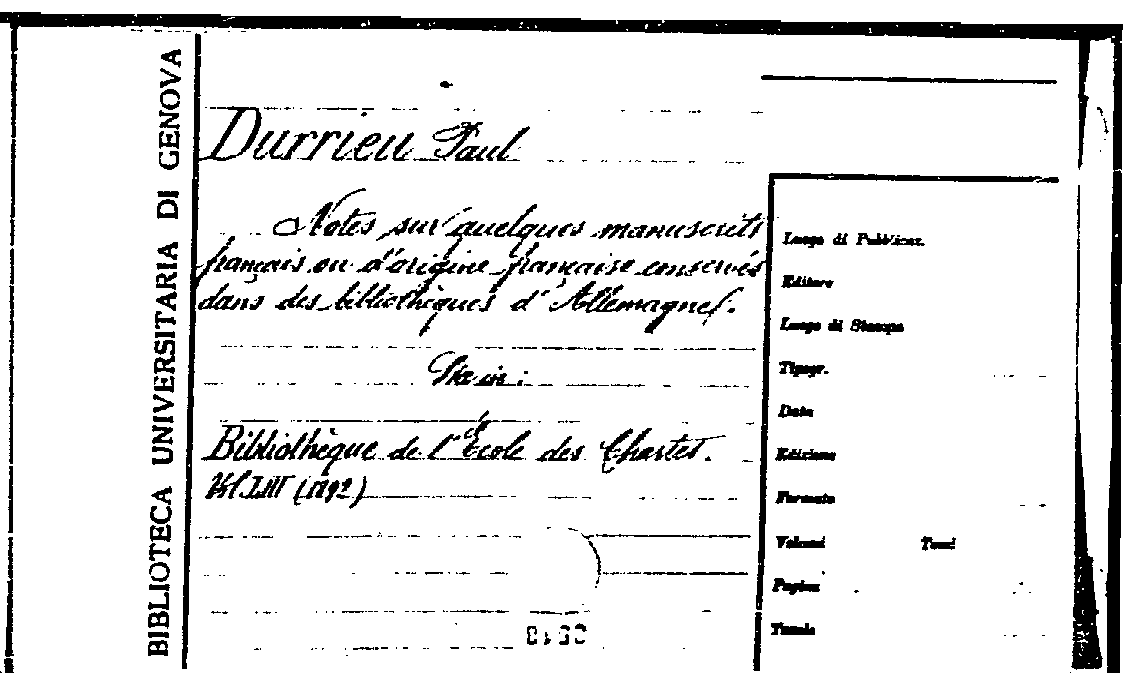 BIBLIOTECA UNIVERSITARIA DI GENOVA
Durrieu Paul
Notes sur quelques manuscrits
français ou d'origine française conservés
dans des bibliothèques d'Allemagne.
Sta in:
Bibliothèque de l'École des Chartes.
LIII (1892)
Luogo di Pubblicaz.
Editore
Luogo di Stampa
Tipogr.
Data
Edizione
Formato
Volumi Tomi
Pagine
Tavole